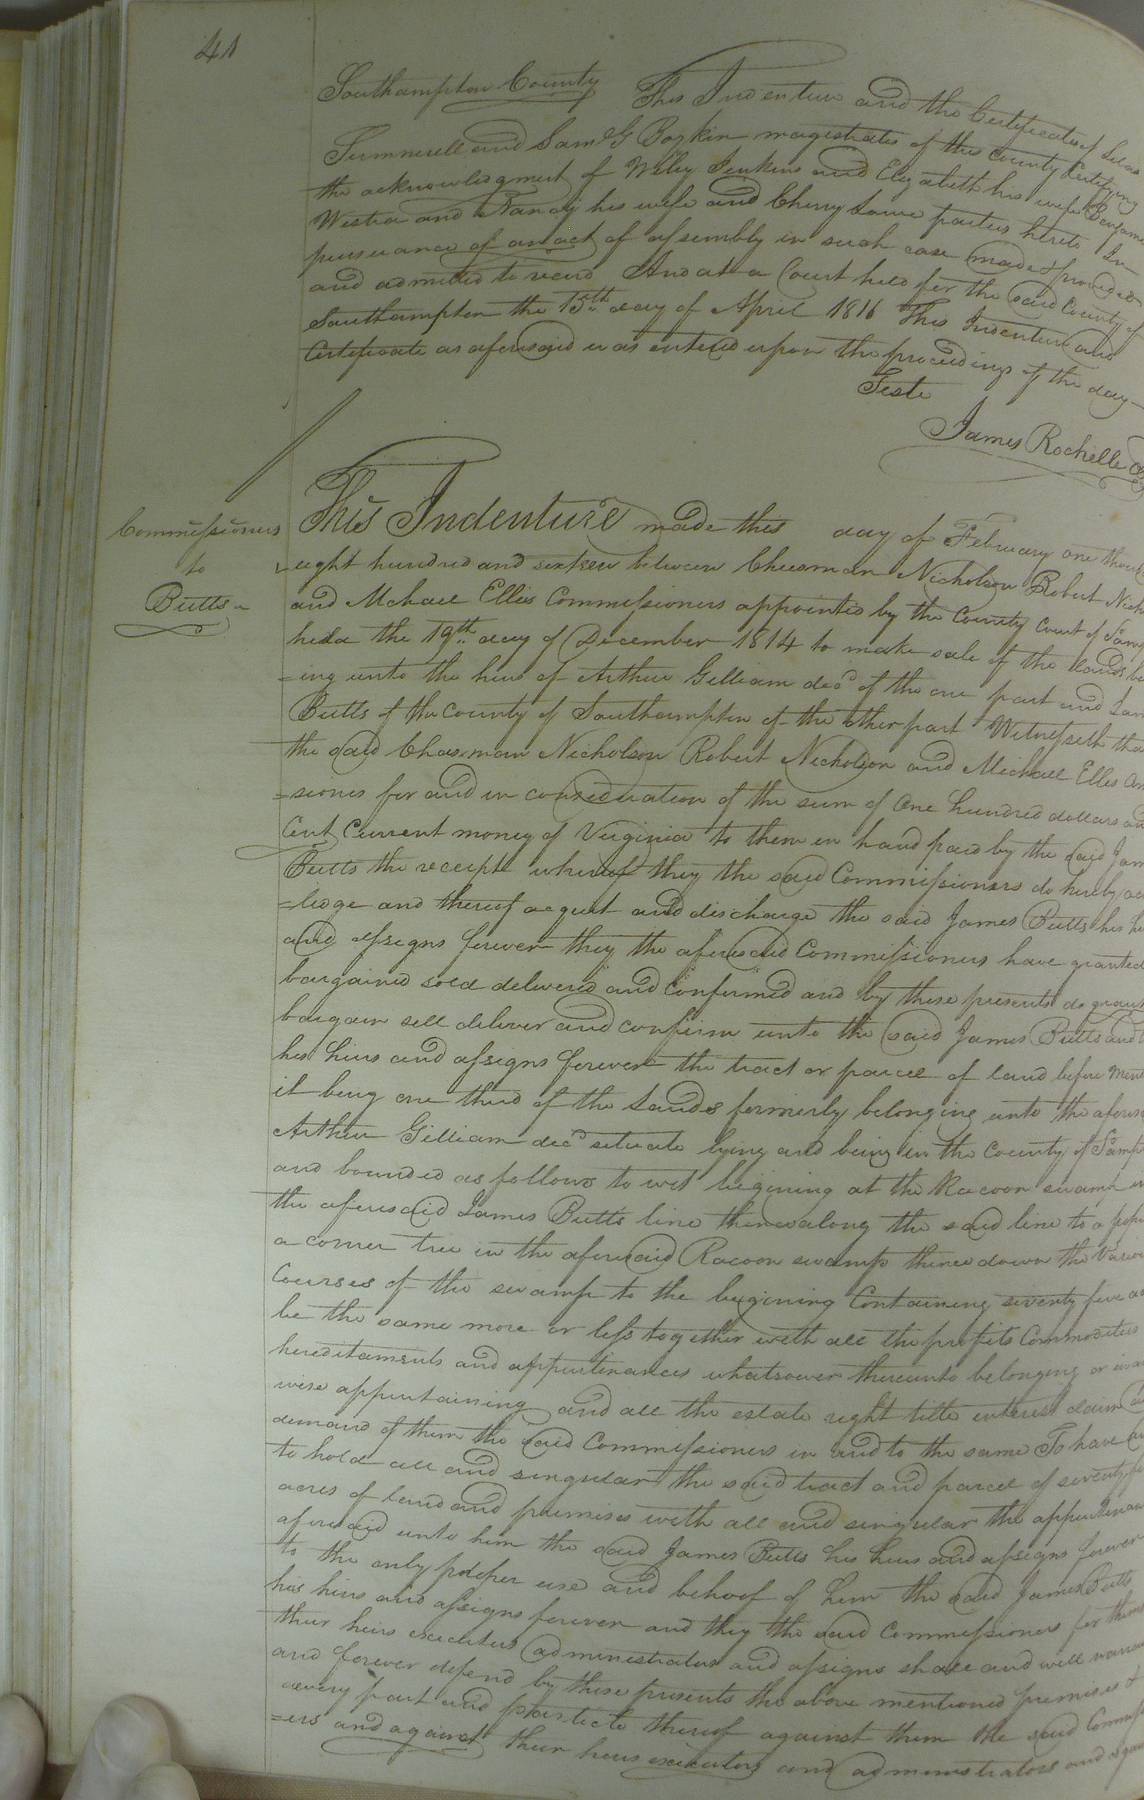 41
Southampton County This Indenture and the Certificate of Silas
Summerell and Saml G Boykin magistrates of the County Certifying
the acknowledgment of Wiley Jenkins and Elizabeth his wife Benjamin
Westra and Nancy his wife and Cherry Lowe parties hereto In
persuance of an act of assembly in such case made & provided
and admitted to record And at a Court held for the said County of
Southampton the 15th day of April 1816 This Indenture and
Certificate as aforesaid was entered upon the proceedings of the day—
Teste
James Rochelle
Commissioners
to
Butts
This Indenture made this day of February one thous
eight hundred and sixteen between Cheesman Nicholson Robert Nich
and Mchael Ellis Commissioners appointed by the County Court of Samp
held the 19th day of December 1814 to make sale of the lands be
=ing unto the heirs of Arthur Gilliam decd of the one part and Jam
Butts of the County of Southampton of the other part Witnesseth tha
the said Cheesman Nicholson Robert Nicholson and Michael Ellis
=sioners for and in consideration of the sum of One hundred dollars and
Cent Current money of Virginia to them in hand paid by the said Jam
Butts the receipt whereof they the said Commissioners do hereby ac
=ledge and thereof acquit and discharge the said James Butts his he
and assigns forever they the aforesaid Commissioners have granted
bargained sold delivered and Confirmed and by these presents do grant
bargain sell deliver and confirm unto the said James Butts and
his heirs and assigns forever the tract or parcel of land before ment
it being one third of the Lands formerly belonging unto the afores
Arthur Gilliam decd situate lying and being in the County of Samp
and bounded as follows to wit begining at the Racoon swamp in
the aforesaid James Butts line thence along the said line to a pop
a corner tree in the aforesaid Racoon swamp thence down the Vario
Courses of the swamp to the begining Containing seventy five ac
be the same more or less together with all the profits Commodities
hereditaments and appurtenances whatsoever thereunto belonging or in an
wise appertaining and all the estate right title interest claim
demand of them the said Commissioners in and to the same To have an
to hold all and singular the said tract and parcel of seventy fi
acres of land and premises with all and singular the appurtenan
aforesaid unto him the said James Butts his heirs and assigns forever
to the only propper use and behoof of him the said James Butts
his heirs and assigns forever and they the said Commissioners for them
their heirs executors administrators and assigns shall and will warra
and forever defend by these presents the above mentioned premises &
every part and particle thereof against them the said Commiss
=ers and against their heirs executors and administrators and again